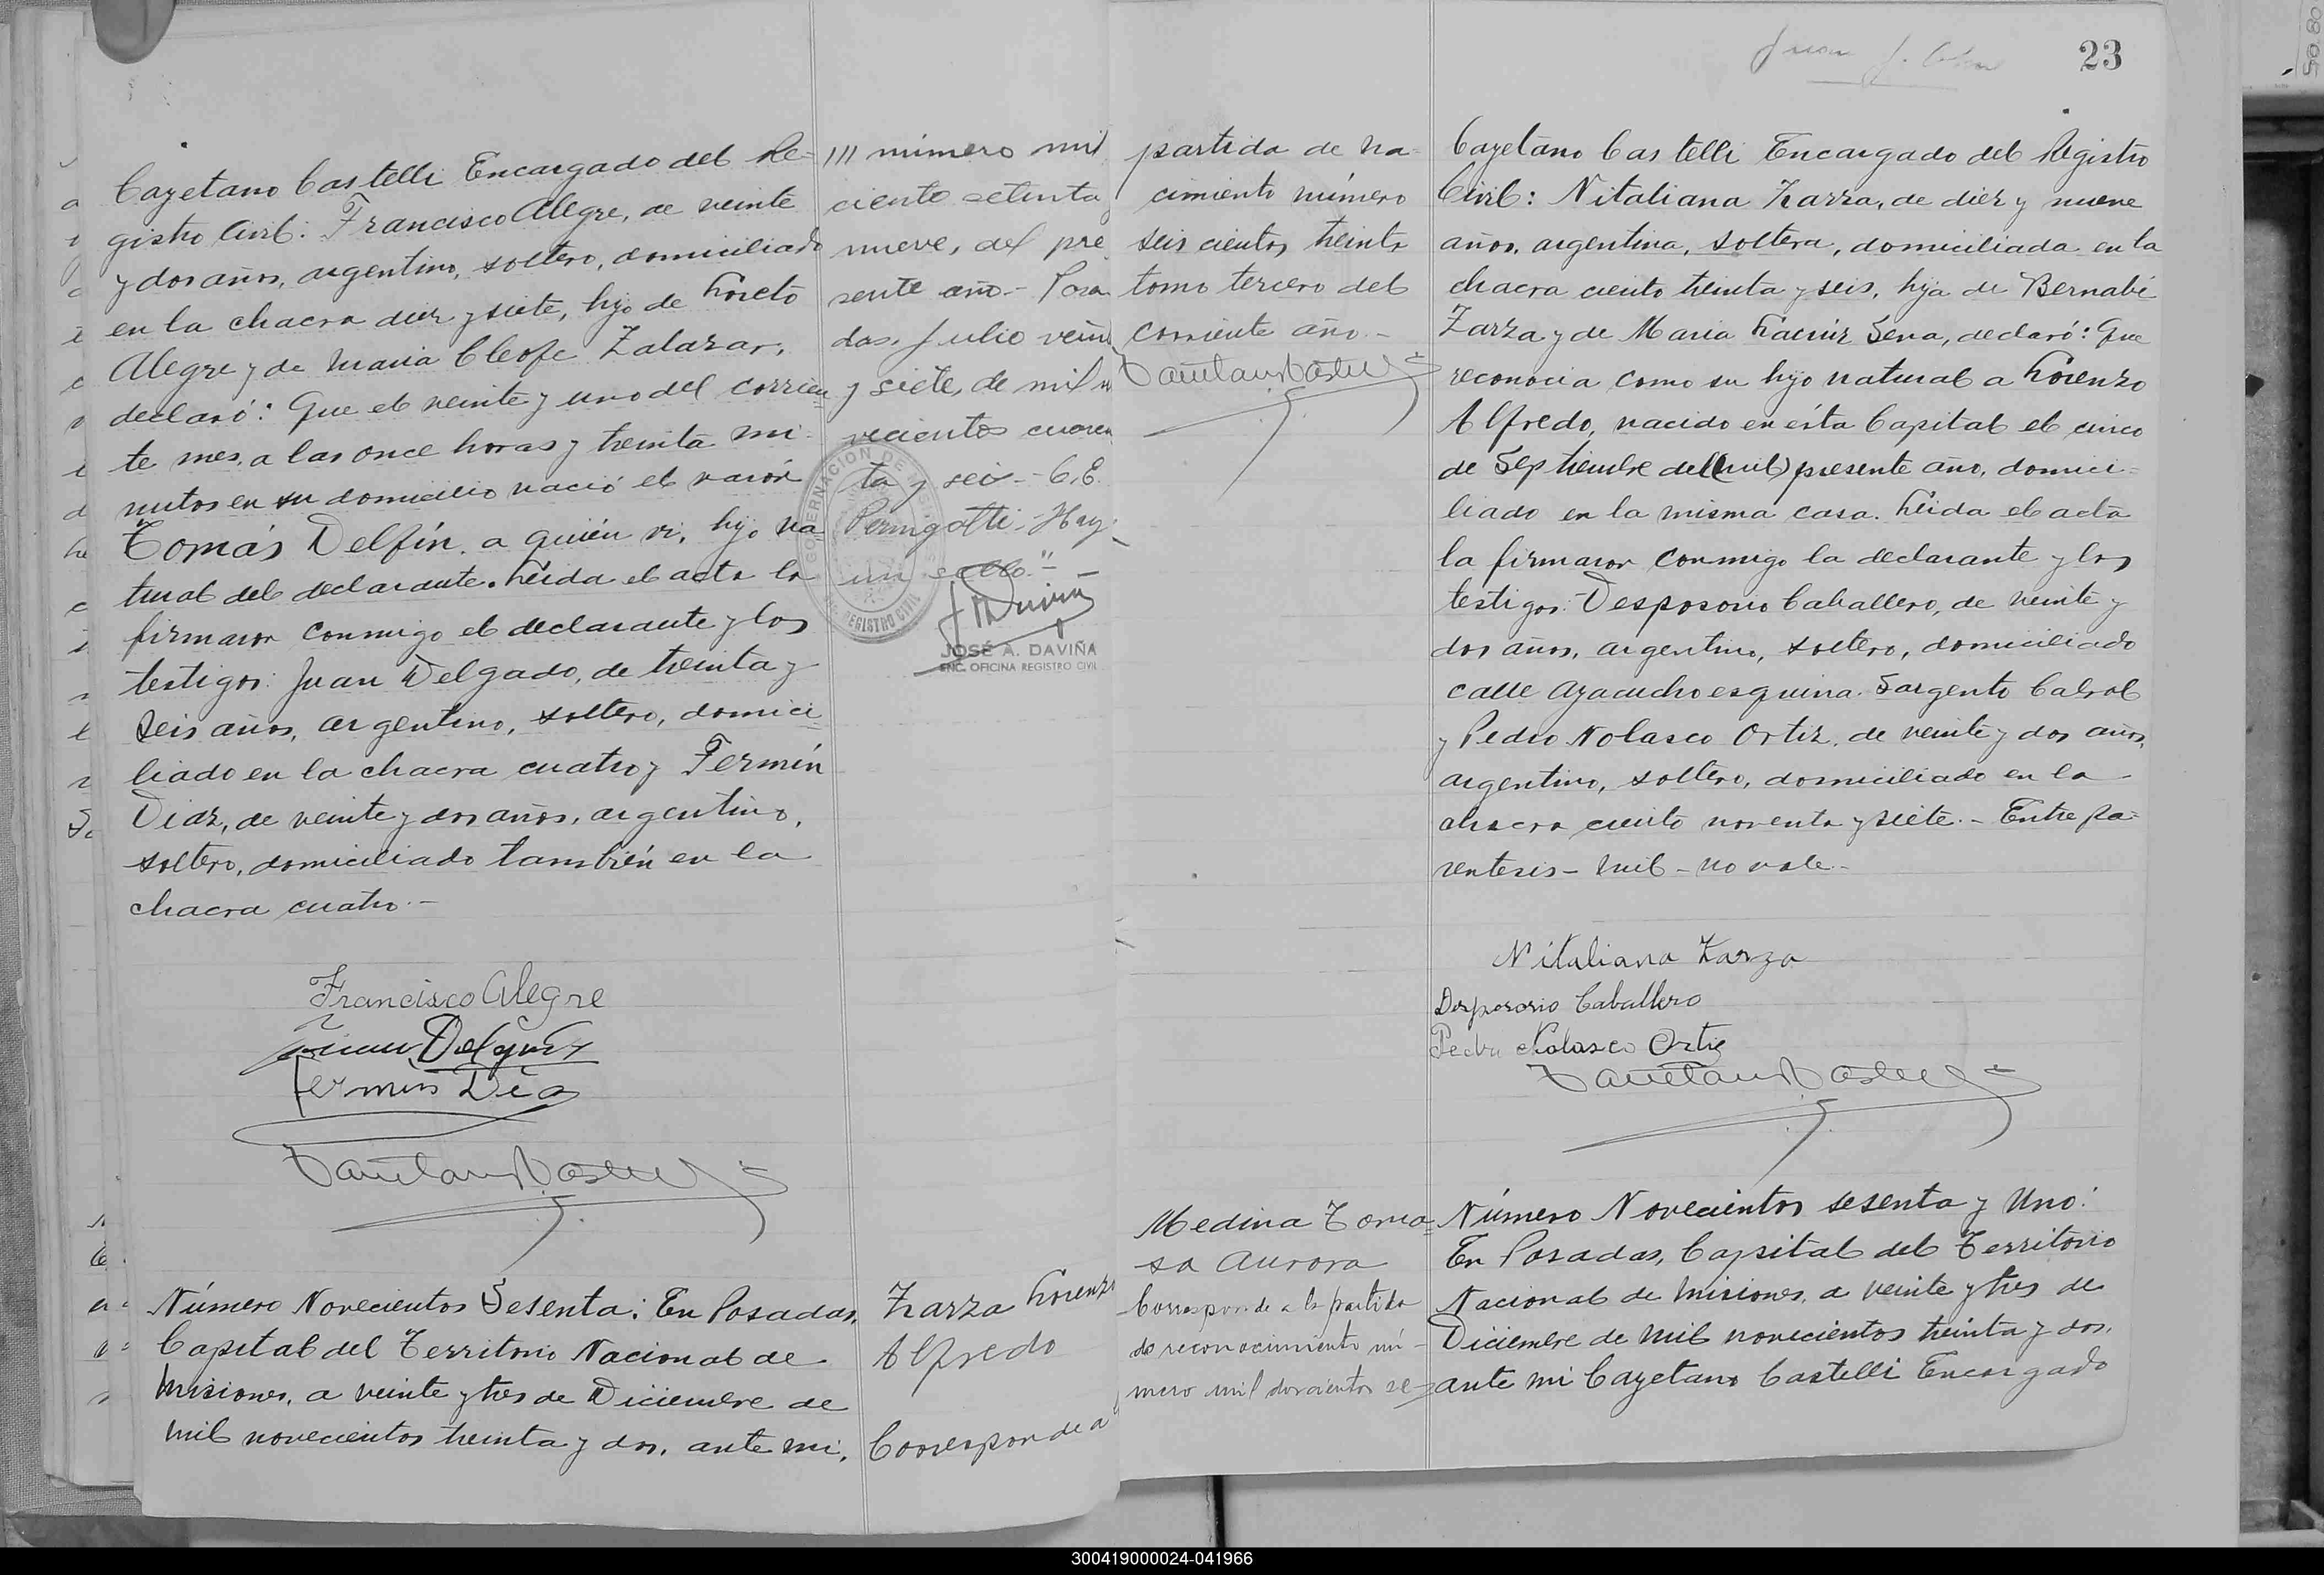 Cayetano Castelli Encargado del Re-
gistro Civil: Francisco Alegre, de veinte
y dos años, argentino, soltero, domiciliado
en la chacra diez y siete, hijo de Loreto
Alegre y de Maria Cleofe Zalazar,
declaró: Que el veinte y uno del corrien
te mes, a las once horas y treinta mi-
nutos en su domicilio nació el varón
Tomás Delfín, a quién vi, hijo na-
tural del declarante. Leida el acta la
firmaron conmigo el declarante y los
testigos: Juan Delgado, de treinta y
seis años, argentino, soltero, domici-
liado en la chacra cuatro y Fermín
Diaz, de veinte y dos años, argentino,
soltero, domiciliado también en la
chacra cuatro.-
Francisco Alegre
Juan Delgado
Fermin Diaz
Número Novecientos Sesenta: En Posadas,
Capital del Territorio Nacional de
Misiones, a veinte y tres de Diciembre de
mil novecientos treinta y dos, ante mi,
III número mil
ciento setenta y
nueve, del pre
sente año.- Posa
das, Julio vein
y siete, de mil n
vecientos cuaren
ta y seis.- C.E.
Peringotti- Hay
un sello."-
JOSÉ A. DAVIÑA
ENC. OFICINA REGISTRO CIVIL
GOBERNACION DE MISIONES
REGISTRO CIVIL
Zarza Lorenzo
Alfredo
Corresponde a
23
partida de na-
cimiento número
seis cientos treinta
tomo tercero del
corriente año.-
Medina Toma-
sa Aurora
Corresponde a la partida
de reconocimiento nú-
mero mil doscientos se-
Cayetano Castelli Encargado del Registro
Civil: Nitaliana Zarza, de diez y nueve
años, argentina, soltera, domiciliada en la
chacra ciento treinta y seis, hija de Bernabé
Zarza y de Maria Sena, declaró: Que
reconocia como su hijo natural a Lorenzo
Alfredo, nacido en ésta Capital el cinco
de Septiembre del (mil) presente año, domici-
liado en la misma casa. Leida el acta
la firmaron conmigo la declarante y los
testigos: Desposorio Caballero, de veinte y
dos años, argentino, soltero, domiciliado
calle Ayacucho esquina Sargento Cabral
y Pedro Nolasco Ortiz, de veinte y dos años,
argentino, soltero, domiciliado en la
chacra ciento noventa y siete.- Entre pa-
rentesis- mil- no vale.-
Nitaliana Zarza
Desposorio Caballero
Pedro Nolasco Ortiz
Número Novecientos sesenta y Uno:
En Posadas, Capital del Territorio
Nacional de Misiones, a veinte y tres de
Diciembre de mil novecientos treinta y dos,
ante mi Cayetano Castelli Encargado
300419000024-041966